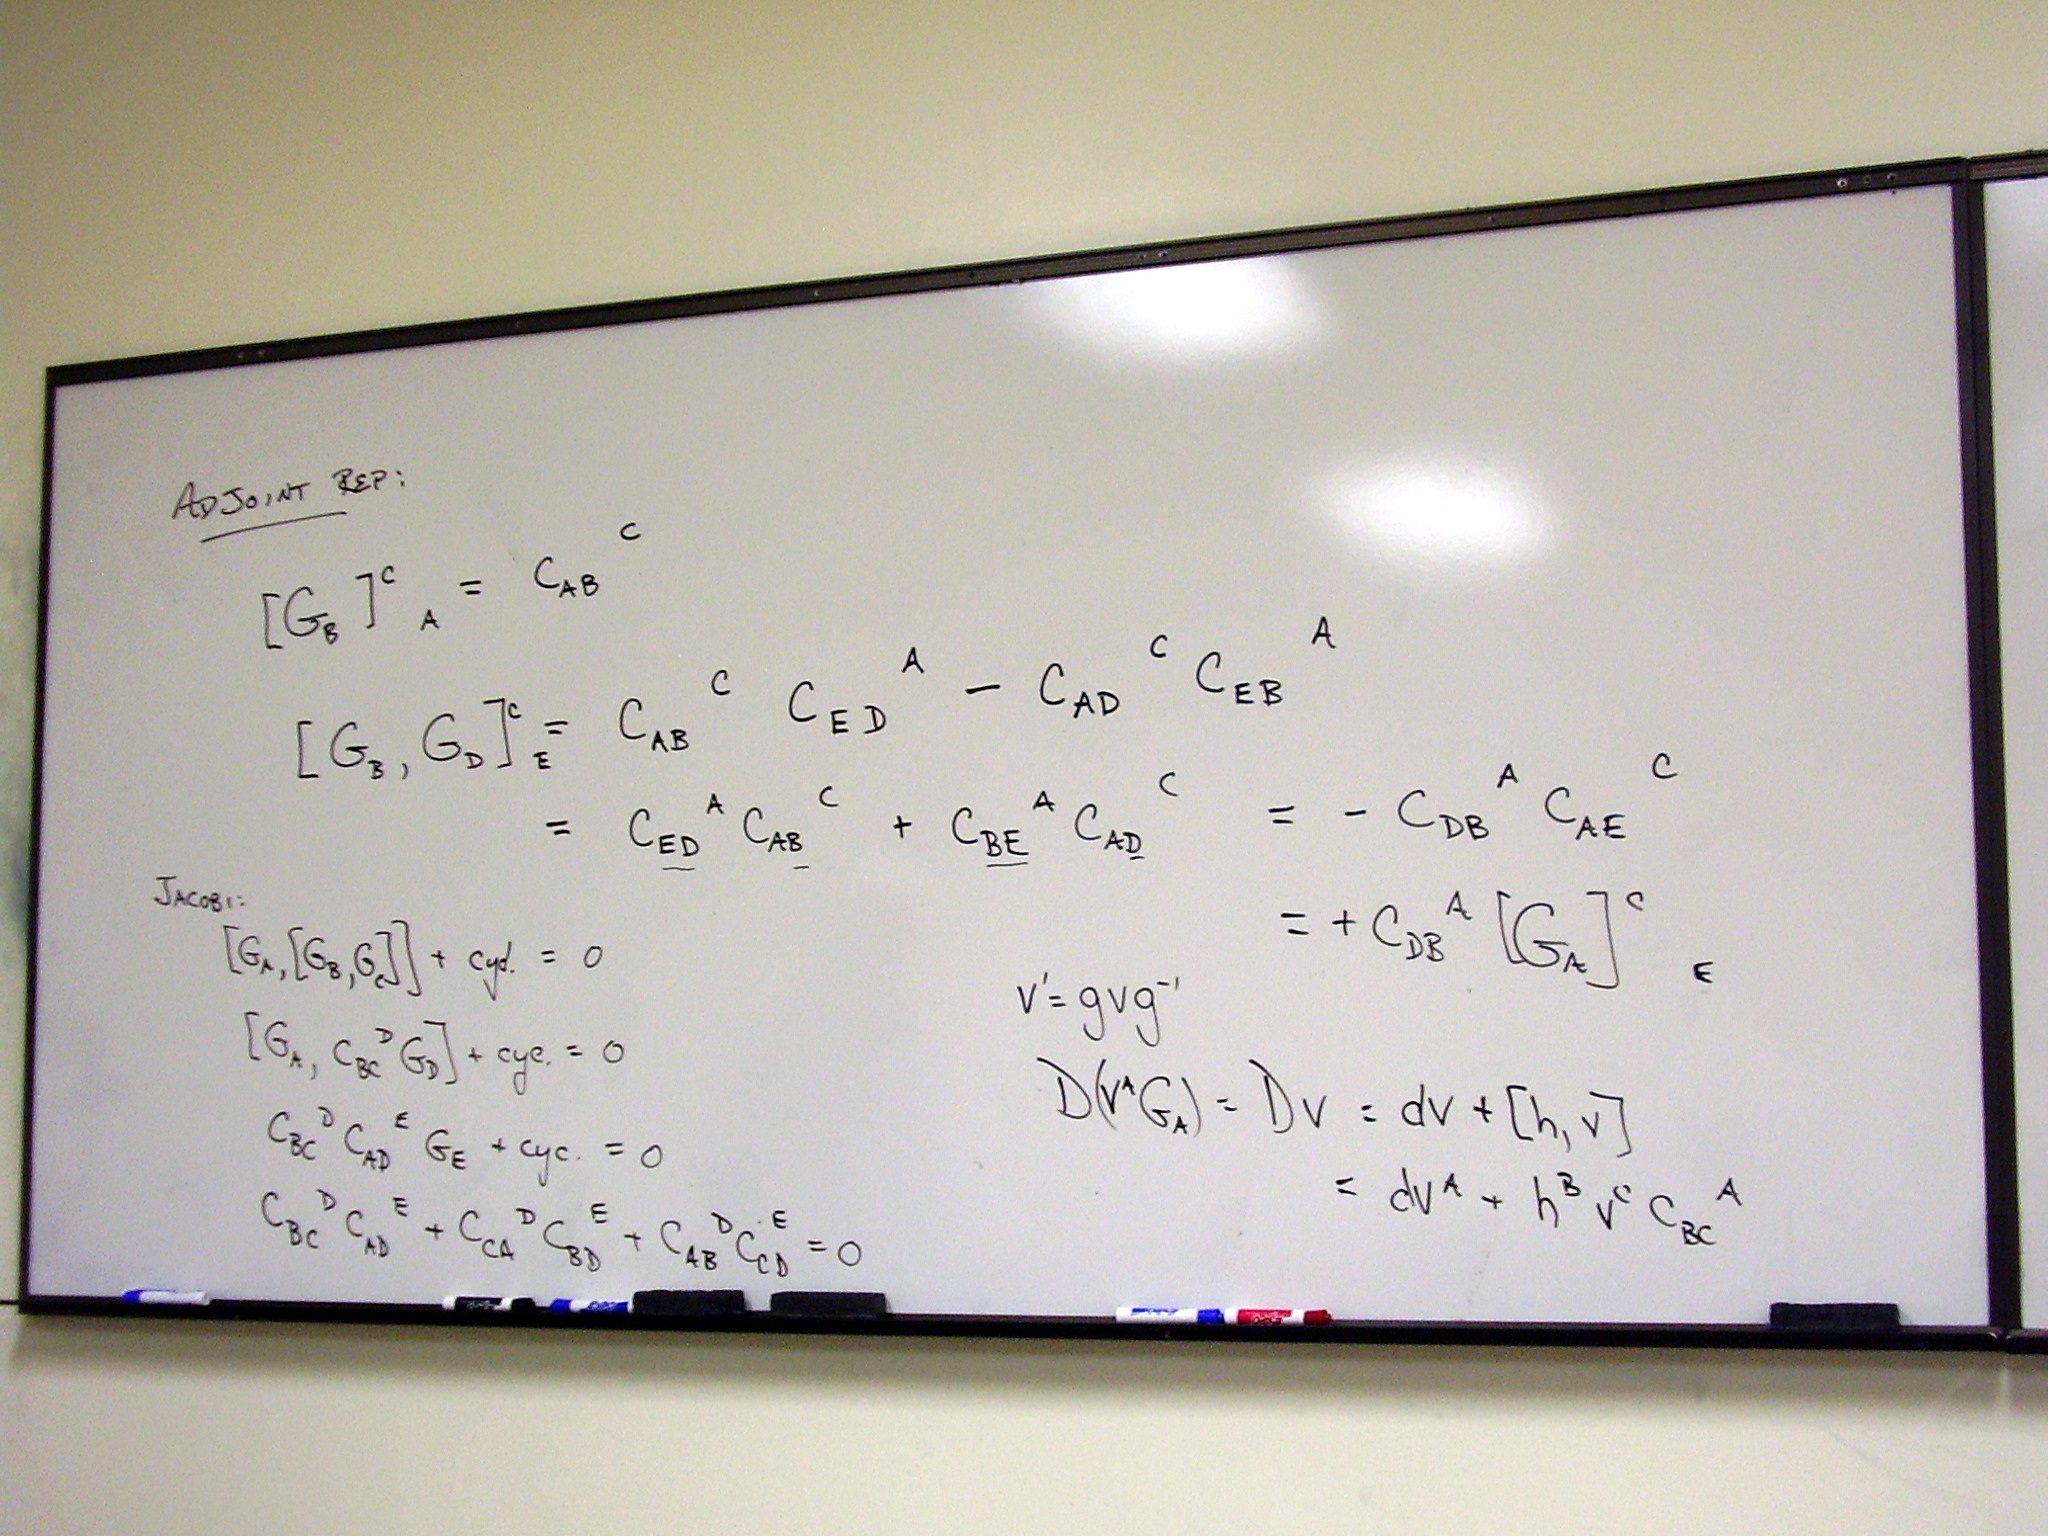 ADJOINT REP:
[G_B]^C_A = C_AB^C
[G_B, G_D]^C_E = C_AB^C C_ED^A - C_AD^C C_EB^A
= C_ED^A C_AB^C + C_BE^A C_AD^C = - C_DB^A C_AE^C
= + C_DB^A [G_A]^C_E
JACOBI:
[G_A, [G_B, G_C]] + cycl. = 0
[G_A, C_BC^D G_D] + cyc. = 0
C_BC^D C_AD^E G_E + cyc. = 0
C_BC^D C_AD^E + C_CA^D C_BD^E + C_AB^D C_CD^E = 0
v' = gvg^-1
D(v^A G_A) = Dv = dv + [h, v]
= dv^A + h^B v^C C_BC^A